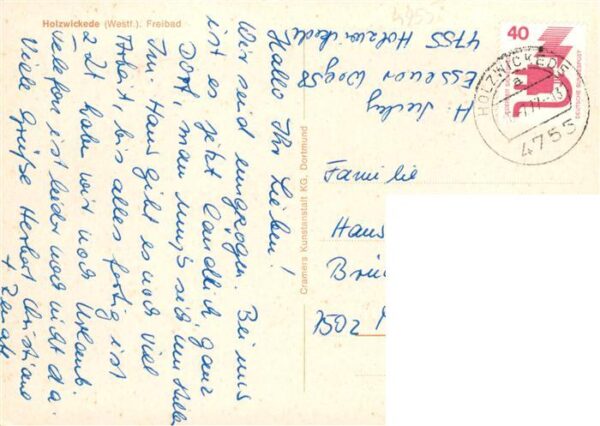 Holzwickede (Westf.). Freibad
Hallo Ihr Lieben!
Wir sind eingezogen. Bei uns
ist es jetzt ländlich, ganz
Dorf, man muß sich umstellen
Im Haus gibt es noch viel
Arbeit, bis alles fertig ist
z Zt haben wir noch Urlaub.
Telefon ist leider noch nicht da.
Viele Grüße Herbert Christiane
+ Renate
Cramers Kunstanstalt KG, Dortmund
H.
Essener Weg 58
4755 Holzwickede
40
DEUTSCHE BUNDESPOST
HOLZWICKEDE
a
4755
Familie
Hans
Brü
7502